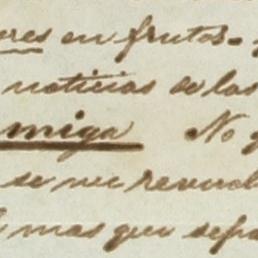 res en frutos.
noticias de las
miga No
se me revuel
mas que sepa